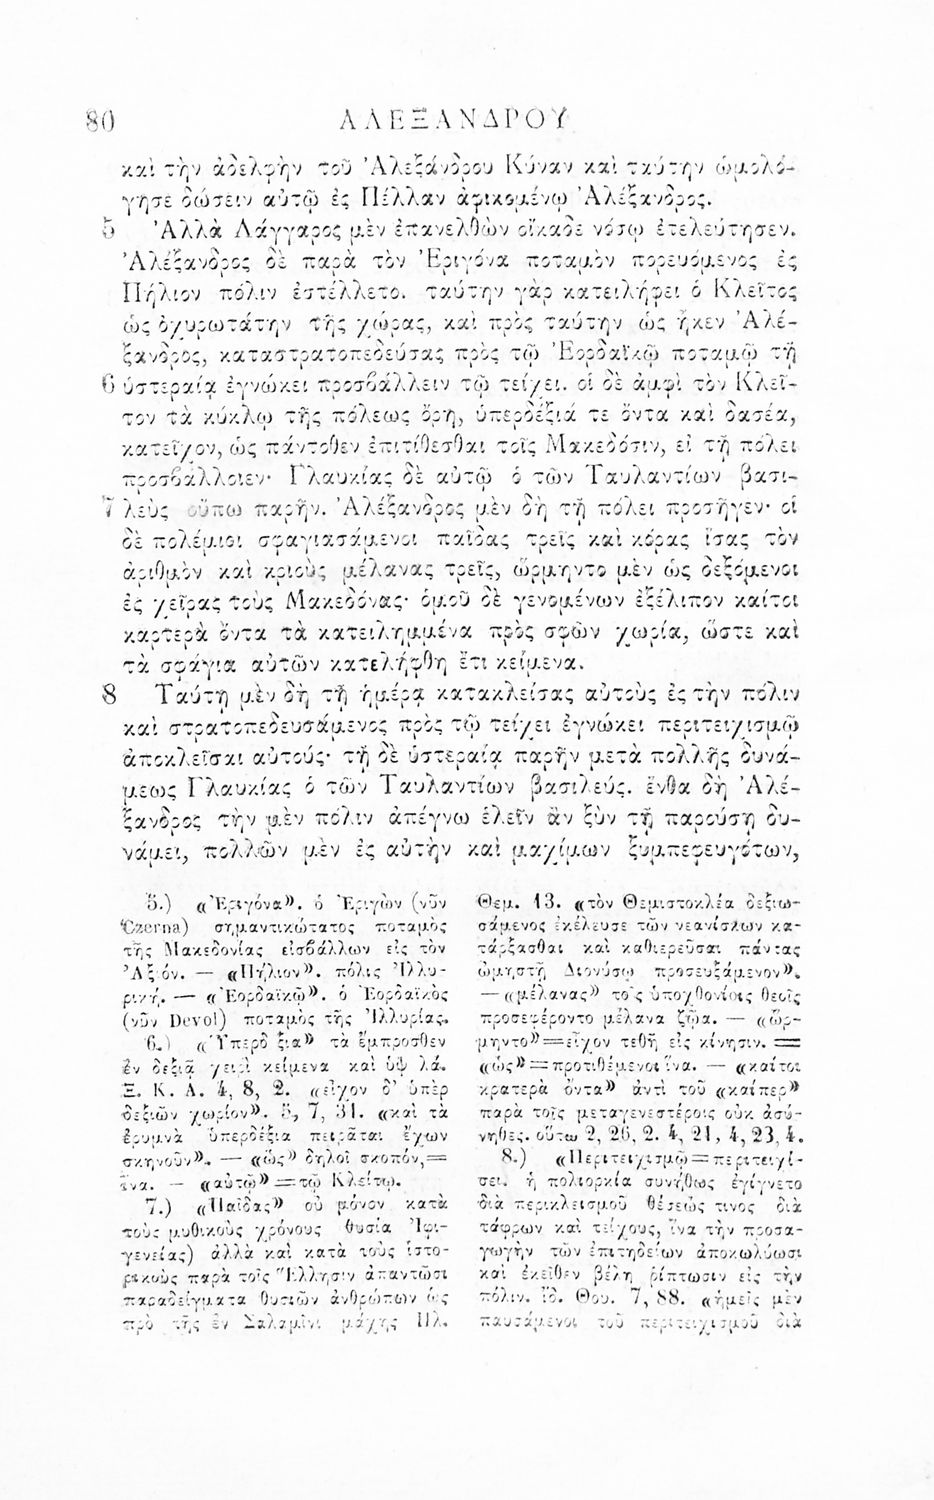 80
ΑΛΕΞΑΝΔΡΟΥ
καὶ τὴν ἀδελφὴν τοῦ Ἀλεξάνδρου Κύναν καὶ ταύτην ὡμολό-
γησε δώσειν αὐτῷ ἐς Πέλλαν ἀφικομένῳ Ἀλέξανδρος.
5 Ἀλλὰ Λάγγαρος μὲν ἐπανελθὼν οἴκαδε νόσῳ ἐτελεύτησεν.
Ἀλέξανδρος δὲ παρὰ τὸν Ἐριγόνα ποταμὸν πορευόμενος ἐς
Πήλιον πόλιν ἐστέλλετο. ταύτην γὰρ κατειλήφει ὁ Κλεῖτος
ὡς ὀχυρωτάτην τῆς χώρας, καὶ πρὸς ταύτην ὡς ἧκεν Ἀλέ-
ξανδρος, καταστρατοπεδεύσας πρὸς τῷ Ἐορδαϊκῷ ποταμῷ τῇ
6 ὑστεραίᾳ ἐγνώκει προσβάλλειν τῷ τείχει. οἱ δὲ ἀμφὶ τὸν Κλεῖ-
τον τὰ κύκλῳ τῆς πόλεως ὄρη, ὑπερδέξιά τε ὄντα καὶ δασέα,
κατεῖχον, ὡς πάντοθεν ἐπιτίθεσθαι τοῖς Μακεδόσιν, εἰ τῇ πόλει
προσβάλλοιεν· Γλαυκίας δὲ αὐτῷ ὁ τῶν Ταυλαντίων βασι-
7 λεὺς οὔπω παρῆν. Ἀλέξανδρος μὲν δὴ τῇ πόλει προσῆγεν· οἱ
δὲ πολέμιοι σφαγιασάμενοι παῖδας τρεῖς καὶ κόρας ἴσας τὸν
ἀριθμὸν καὶ κριοὺς μέλανας τρεῖς, ὥρμηντο μὲν ὡς δεξόμενοι
ἐς χεῖρας τοὺς Μακεδόνας· ὁμοῦ δὲ γενομένων ἐξέλιπον καίτοι
καρτερὰ ὄντα τὰ κατειλημμένα πρὸς σφῶν χωρία, ὥστε καὶ
τὰ σφάγια αὐτῶν κατελήφθη ἔτι κείμενα.
8 Ταύτῃ μὲν δὴ τῇ ἡμέρᾳ κατακλείσας αὐτοὺς ἐς τὴν πόλιν
καὶ στρατοπεδευσάμενος πρὸς τῷ τείχει ἐγνώκει περιτειχισμῷ
ἀποκλεῖσαι αὐτούς· τῇ δὲ ὑστεραίᾳ παρῆν μετὰ πολλῆς δυνά-
μεως Γλαυκίας ὁ τῶν Ταυλαντίων βασιλεύς. ἔνθα δὴ Ἀλέ-
ξανδρος τὴν μὲν πόλιν ἀπέγνω ἑλεῖν ἂν ξὺν τῇ παρούσῃ δυ-
νάμει, πολλῶν μὲν ἐς αὐτὴν καὶ μαχίμων ξυμπεφευγότων,
5.) «Ἐριγόνα». ὁ Ἐριγὼν (νῦν
Czerna) σημαντικώτατος ποταμὸς
τῆς Μακεδονίας εἰσβάλλων εἰς τὸν
Ἀξιόν. — «Πήλιον». πόλις Ἰλλυ-
ρική. — «Ἐορδαϊκῷ». ὁ Ἐορδαϊκὸς
(νῦν Devol) ποταμὸς τῆς Ἰλλυρίας.
6.) «Ὑπερδέξια» τὰ ἔμπροσθεν
ἐν δεξιᾷ χειρὶ κείμενα καὶ ὑψηλά.
Ξ. Κ. Α. 4, 8, 2. «εἶχον δ' ὑπερ
δεξιῶν χωρίον». 5, 7, 31. «καὶ τὰ
ἐρυμνὰ ὑπερδέξια πειρᾶται ἔχων
σκηνοῦν». — «ὡς» δηλοῖ σκοπόν,=
ἵνα. — «αὐτῷ»=τῷ Κλείτῳ.
7.) «Παῖδας» οὐ μόνον κατὰ
τοὺς μυθικοὺς χρόνους θυσία Ἰφι-
γενείας) ἀλλὰ καὶ κατὰ τοὺς ἱστο-
ρικοὺς παρὰ τοῖς Ἕλλησιν ἀπαντῶσι
παραδείγματα θυσιῶν ἀνθρώπων ὡς
πρὸ τῆς ἐν Σαλαμῖνι μάχης Πλ.
Θεμ. 13. «τὸν Θεμιστοκλέα δεξιω-
σάμενος ἐκέλευσε τῶν νεανίσκων κα-
τάρξασθαι καὶ καθιερεῦσαι πάντας
ὠμηστῇ Διονύσῳ προσευξάμενον».
—«μέλανας» τοῖς ὑποχθονίοις θεοῖς
προσεφέροντο μέλανα ζῷα. — «ὥρ-
μηντο»=εἶχον τεθῆ εἰς κίνησιν. =
«ὡς»=προτιθέμενοι ἵνα. — «καίτοι
κρατερὰ ὄντα» ἀντὶ τοῦ «καίπερ»
παρὰ τοῖς μεταγενεστέροις οὐκ ἀσύ-
νηθες. οὕτω 2, 26, 2. 4, 21, 4, 23, 4.
8.) «Περιτειχισμῷ=περιτειχί-
σει. ἡ πολιορκία συνήθως ἐγίγνετο
διὰ περικλεισμοῦ θέσεώς τινος διὰ
τάφρων καὶ τείχους, ἵνα τὴν προσα-
γωγὴν τῶν ἐπιτηδείων ἀποκωλύωσι
καὶ ἐκεῖθεν βέλη ῥίπτωσιν εἰς τὴν
πόλιν. ἰδ. Θου. 7, 88. «ἡμεῖς μὲν
παυσάμενοι τοῦ περιτειχισμοῦ διὰ